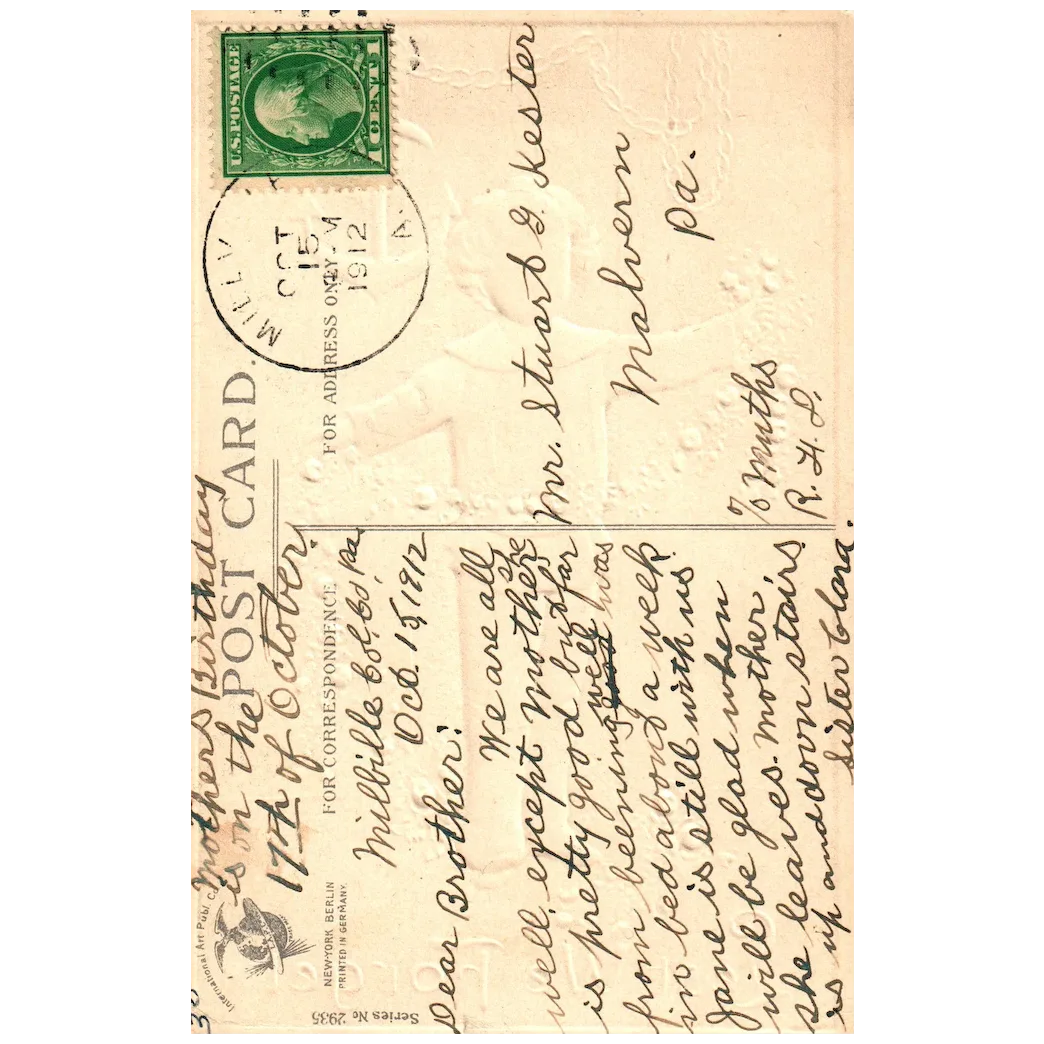 Mothers Birthday
is on the
17th of October.
International Art Publ. Co.
NEW-YORK BERLIN
PRINTED IN GERMANY.
Series No 2935
POST CARD.
FOR CORRESPONDENCE
FOR ADDRESS ONLY
U.S. POSTAGE
1 CENT 1
MILLV
OCT
15
M
1912
Millville Col, Co, Pa,
Oct. 15, 1912
Dear Brother:
We are all
well, except Mother she
is pretty good but far
from beening well was
in bed about a week
Jane is still with us
will be glad when
she leaves. Mother
is up and down stairs
Sister Clara.
Mr. Stuart G. Kester
Malvern
Pa.
c/o Muths
R. F. D.